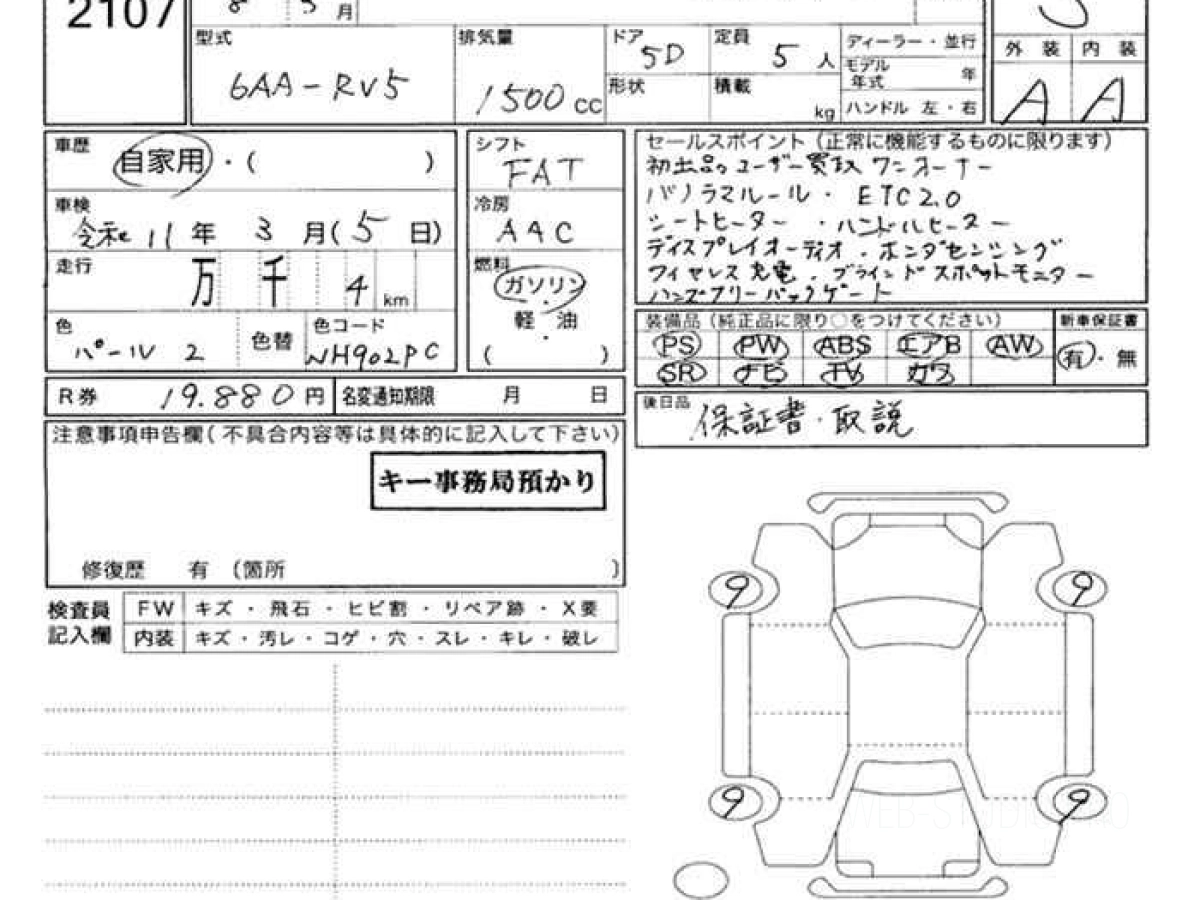 2107
8 3 月
S
型式 排気量 ドア 5D 定員 5 人 ディーラー・並行
外装 内装
6AA-RV5 1500 cc 形状 積載 kg モデル年式 年
ハンドル 左・右
A A
車歴 自家用・( )
シフト FAT
車検 令和 11 年 3 月(5 日)
冷房 AAC
走行 万 千 4 km
燃料 ガソリン・軽油・( )
色 パール 2 色替 色コード NH902PC
セールスポイント(正常に機能するものに限ります)
初出品 ユーザー買取 ワンオーナー
パノラマルール・ETC2.0
シートヒーター・ハンドルヒーター
ディスプレイオーディオ・ホンダセンシング
ワイヤレス充電・ブラインドスポットモニター
ハンズフリーバックゲート
装備品(純正品に限り○をつけてください) 新車保証書
PS PW ABS エアB AW 有・無
SR ナビ TV カワ
R券 19.880 円 名変通知期限 月 日
後日品 保証書・取説
注意事項申告欄(不具合内容等は具体的に記入して下さい)
キー事務局預かり
修復歴 有 (箇所 )
検査員記入欄 FW キズ・飛石・ヒビ割・リペア跡・X要
内装 キズ・汚レ・コゲ・穴・スレ・キレ・破レ
9 9
9 9